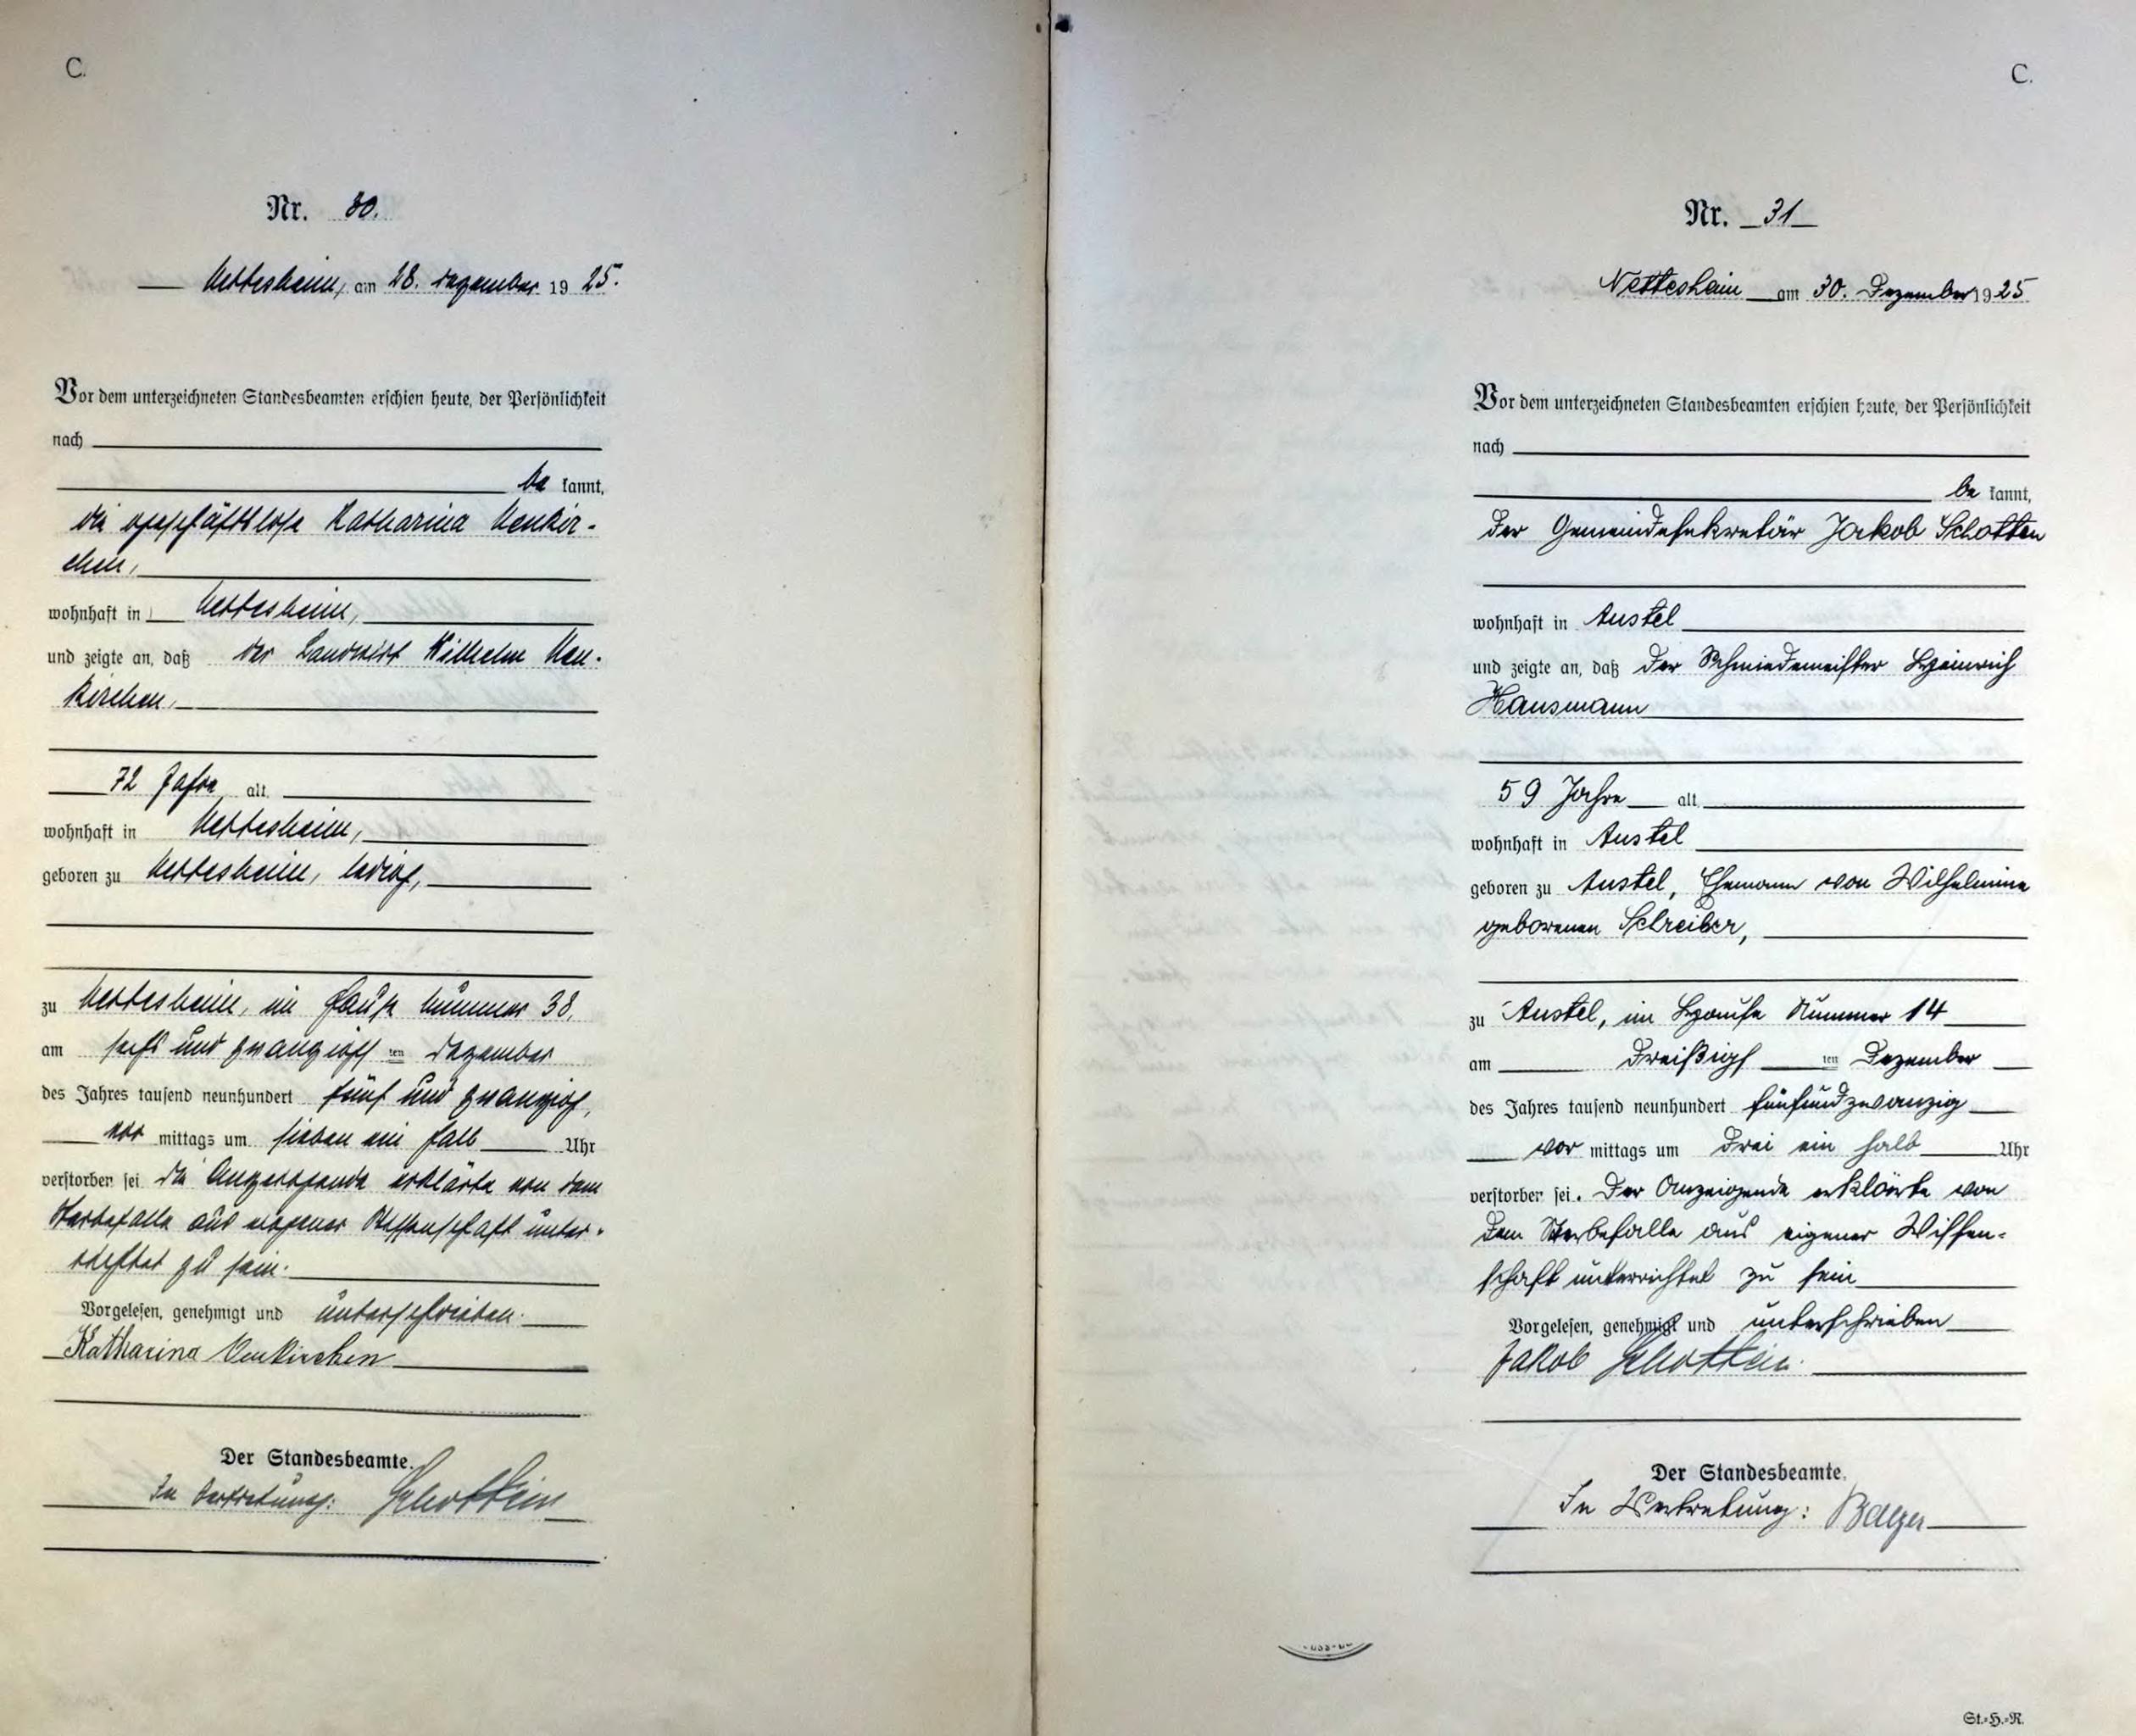 C.
Nr. 30.
Nettesheim, am 28. Dezember 1925.
Vor dem unterzeichneten Standesbeamten erschien heute, der Persönlichkeit
nach
be kannt,
die geschäftslose Katharina Neukir-
chen,
wohnhaft in Nettesheim,
und zeigte an, daß der Landwirt Wilhelm Neu-
kirchen,
72 Jahre alt,
wohnhaft in Nettesheim,
geboren zu Nettesheim, ledig,
zu Nettesheim, im Hause Nummer 38,
am sechs und zwanzigsten Dezember
des Jahres tausend neunhundert fünf und zwanzig,
vor mittags um sieben ein halb Uhr
verstorben sei. Die Anzeigende erklärte von dem
Sterbefalle aus eigener Wissenschaft unter-
richtet zu sein.
Vorgelesen, genehmigt und unterschrieben.
Katharina Neukirchen
Der Standesbeamte.
In Vertretung: Schotten
C.
Nr. 31
Nettesheim am 30. Dezember 1925
Vor dem unterzeichneten Standesbeamten erschien heute, der Persönlichkeit
nach
be kannt,
der Gemeindesekretär Jakob Schotten
wohnhaft in Anstel
und zeigte an, daß der Schmiedemeister Heinrich
Hausmann
59 Jahre alt
wohnhaft in Anstel
geboren zu Anstel, Ehemann von Wilhelmine
geborenen Schreiber,
zu Anstel, im Hause Nummer 14
am Dreißigsten Dezember
des Jahres tausend neunhundert fünfundzwanzig
vor mittags um drei ein halb Uhr
verstorben sei. Der Anzeigende erklärte von
dem Sterbefalle aus eigener Wissen-
schaft unterrichtet zu sein
Vorgelesen, genehmigt und unterschrieben
Jakob Schotten.
Der Standesbeamte.
In Vertretung: Balzer
St.-H.-R.